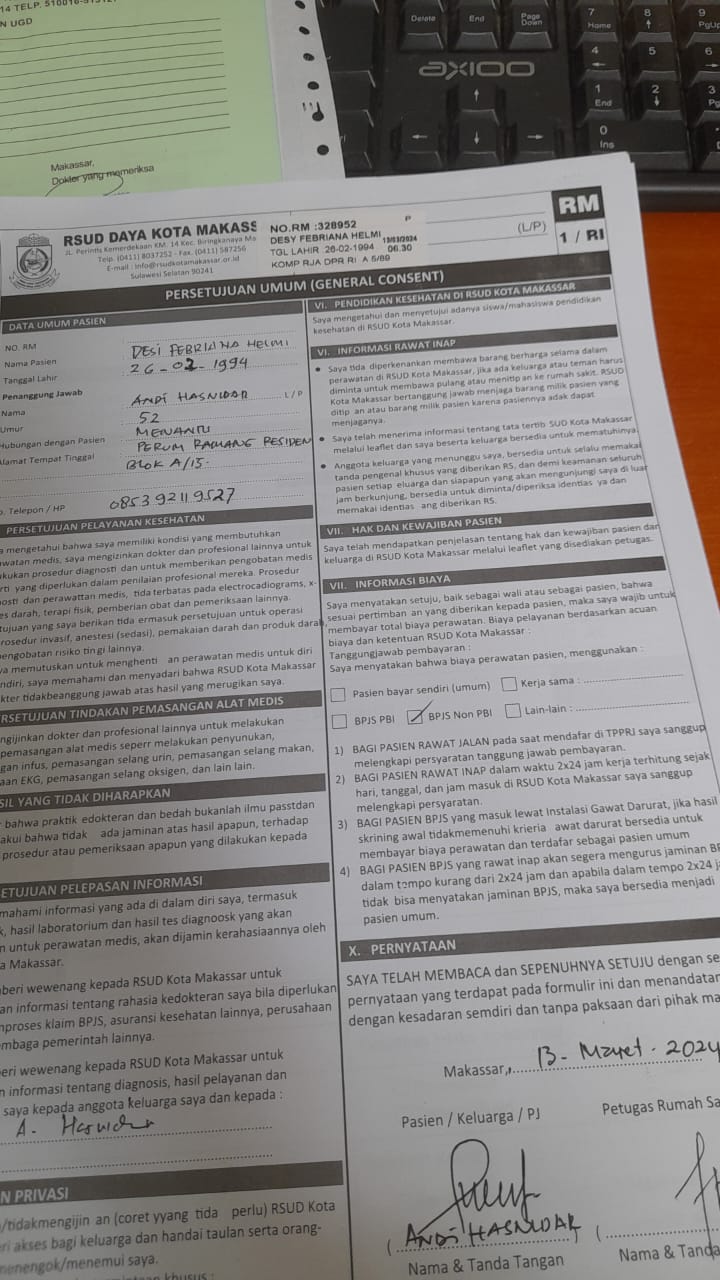 14 TELP. 510016-
N UGD
Makassar,
Dokter yang memeriksa
Delete
End
Page Down
7 Home
8
9 PgUp
AXIOO
4
5
6
1 End
2
3
0 Ins
RSUD DAYA KOTA MAKASS
JL. Perintis Kemerdekaan KM. 14 Kec. Biringkanaya Ma
Telp. (0411) 8037252 - Fax. (0411) 587256
E-mail : info@rsudkotamakassar.or.id
Sulawesi Selatan 90241
NO.RM :328952 P
DESY FEBRIANA HELMI 13/03/2024
TGL LAHIR 26-02-1994 06.30
KOMP RJA DPR RI A 5/89
(L/P)
RM
1 / RI
PERSETUJUAN UMUM (GENERAL CONSENT)
DATA UMUM PASIEN
NO. RM
Nama Pasien DESI FEBRIANA HELMI
Tanggal Lahir 26-02-1994
Penanggung Jawab
Nama ANDI HASNIDAR L / P
Umur 52
Hubungan dengan Pasien MENANTU
Alamat Tempat Tinggal PERUM RAUANG RESIDEN
BLOK A/15.
. Telepon / HP 085392119527
PERSETUJUAN PELAYANAN KESEHATAN
a mengetahui bahwa saya memiliki kondisi yang membutuhkan
watan medis, saya mengizinkan dokter dan profesional lainnya untuk
kukan prosedur diagnosti dan untuk memberikan pengobatan medis
rti yang diperlukan dalam penilaian profesional mereka. Prosedur
osti dan perawattan medis, tida terbatas pada electrocadiograms, x-
es darah, terapi fisik, pemberian obat dan pemeriksaan lainnya.
tujuan yang saya berikan tida ermasuk persetujuan untuk operasi
rosedur invasif, anestesi (sedasi), pemakaian darah dan produk darah,
pengobatan risiko tin gi lainnya.
a memutuskan untuk menghenti an perawatan medis untuk diri
ndiri, saya memahami dan menyadari bahwa RSUD Kota Makassar
kter tidakbeanggung jawab atas hasil yang merugikan saya.
RSETUJUAN TINDAKAN PEMASANGAN ALAT MEDIS
ngijinkan dokter dan profesional lainnya untuk melakukan
pemasangan alat medis seperr melakukan penyunukan,
ngan infus, pemasangan selang urin, pemasangan selang makan,
aan EKG, pemasangan selang oksigen, dan lain lain.
SIL YANG TIDAK DIHARAPKAN
bahwa praktik edokteran dan bedah bukanlah ilmu passtdan
akui bahwa tidak ada jaminan atas hasil apapun, terhadap
prosedur atau pemeriksaan apapun yang dilakukan kepada
ETUJUAN PELEPASAN INFORMASI
mahami informasi yang ada di dalam diri saya, termasuk
k, hasil laboratorium dan hasil tes diagnoosk yang akan
n untuk perawatan medis, akan dijamin kerahasiaannya oleh
a Makassar.
beri wewenang kepada RSUD Kota Makassar untuk
an informasi tentang rahasia kedokteran saya bila diperlukan
nproses klaim BPJS, asuransi kesehatan lainnya, perusahaan
mbaga pemerintah lainnya.
beri wewenang kepada RSUD Kota Makassar untuk
n informasi tentang diagnosis, hasil pelayanan dan
saya kepada anggota keluarga saya dan kepada :
A. Hasnidar
N PRIVASI
/tidakmengijin an (coret yyang tida perlu) RSUD Kota
ri akses bagi keluarga dan handai taulan serta orang-
menengok/menemui saya.
khusus :
VI. PENDIDIKAN KESEHATAN DI RSUD KOTA MAKASSAR
Saya mengetahui dan menyetujui adanya siswa/mahasiswa pendidikan
kesehatan di RSUD Kota Makassar.
VI. INFORMASI RAWAT INAP
• Saya tida diperkenankan membawa barang berharga selama dalam
perawatan di RSUD Kota Makassar, jika ada keluarga atau teman harus
diminta untuk membawa pulang atau menitip an ke rumah sakit. RSUD
Kota Makassar bertanggung jawab menjaga barang milik pasien yang
ditip an atau barang milik pasien karena pasiennya adak dapat
menjaganya.
• Saya telah menerima informasi tentang tata tertib SUD Kota Makassar
melalui leaflet dan saya beserta keluarga bersedia untuk mematuhinya.
• Anggota keluarga yang menunggu saya, bersedia untuk selalu memakai
tanda pengenal khusus yang diberikan RS, dan demi keamanan seluruh
pasien setiap eluarga dan siapapun yang akan mengunjungi saya di luar
jam berkunjung, bersedia untuk diminta/diperiksa identias ya dan
memakai identias ang diberikan RS.
VII. HAK DAN KEWAJIBAN PASIEN
Saya telah mendapatkan penjelasan tentang hak dan kewajiban pasien dan
keluarga di RSUD Kota Makassar melalui leaflet yang disediakan petugas.
VII. INFORMASI BIAYA
Saya menyatakan setuju, baik sebagai wali atau sebagai pasien, bahwa
sesuai pertimban an yang diberikan kepada pasien, maka saya wajib untuk
membayar total biaya perawatan. Biaya pelayanan berdasarkan acuan
biaya dan ketentuan RSUD Kota Makassar :
Tanggungjawab pembayaran :
Saya menyatakan bahwa biaya perawatan pasien, menggunakan :
Pasien bayar sendiri (umum) Kerja sama :
BPJS PBI BPJS Non PBI Lain-lain :
1) BAGI PASIEN RAWAT JALAN pada saat mendafar di TPPRJ saya sanggup
melengkapi persyaratan tanggung jawab pembayaran.
2) BAGI PASIEN RAWAT INAP dalam waktu 2x24 jam kerja terhitung sejak
hari, tanggal, dan jam masuk di RSUD Kota Makassar saya sanggup
melengkapi persyaratan.
3) BAGI PASIEN BPJS yang masuk lewat Instalasi Gawat Darurat, jika hasil
skrining awal tidakmemenuhi krieria awat darurat bersedia untuk
membayar biaya perawatan dan terdafar sebagai pasien umum
4) BAGI PASIEN BPJS yang rawat inap akan segera mengurus jaminan BP
dalam tempo kurang dari 2x24 jam dan apabila dalam tempo 2x24 j
tidak bisa menyatakan jaminan BPJS, maka saya bersedia menjadi
pasien umum.
X. PERNYATAAN
SAYA TELAH MEMBACA dan SEPENUHNYA SETUJU dengan se
pernyataan yang terdapat pada formulir ini dan menandatan
dengan kesadaran semdiri dan tanpa paksaan dari pihak ma
Makassar, 13 - Maret - 2024
Pasien / Keluarga / PJ Petugas Rumah Sa
(ANDI HASNIDAR (
Nama & Tanda Tangan Nama & Tanda